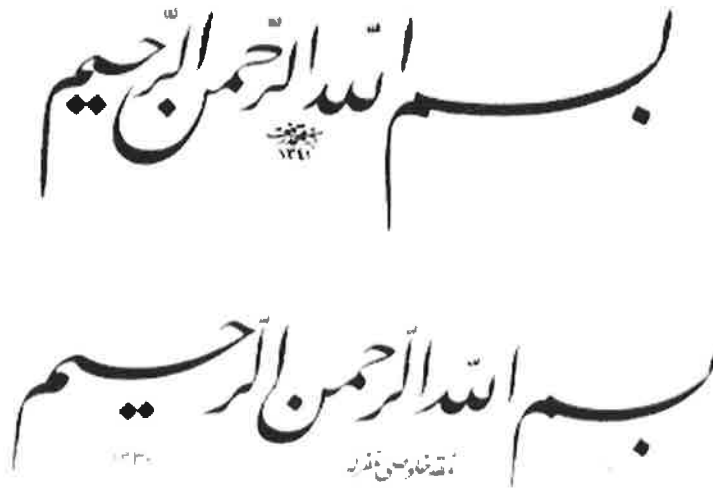 بسم الله الرحمن الرحيم
١٣٤١
بسم الله الرحمن الرحيم